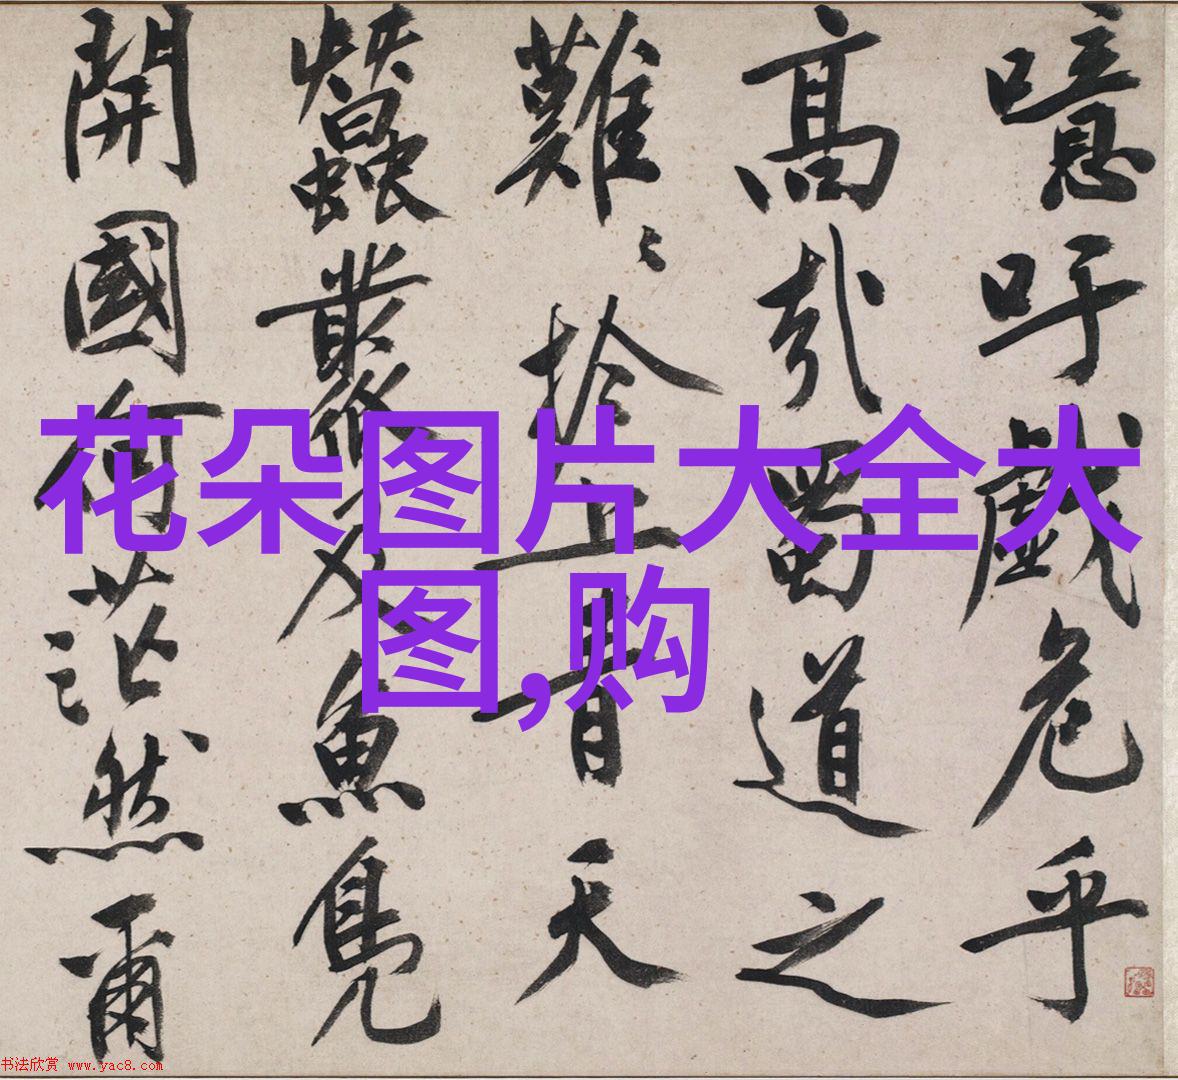 噫吁戲危乎
高哉蜀道之
難〻於上青天
蠶叢及魚鳧
開國何茫然爾
花朵图片大全大
图,购
书法欣赏 www.yac8.com